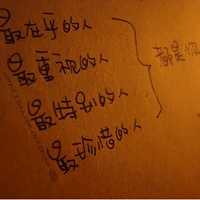 ①最在乎的人
②最重视的人
③最特别的人
④最珍惜的人
都是你